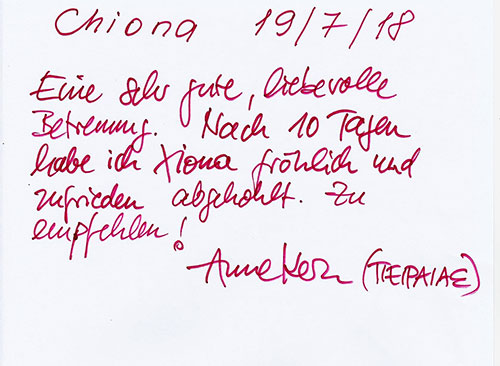 Chiona 19/7/18
Eine sehr gute, liebevolle
Betreuung. Nach 10 Tagen
habe ich Xiona fröhlich und
zufrieden abgehohlt. Zu
empfehlen!
(ΠΕΙΡΑΙΑΣ)